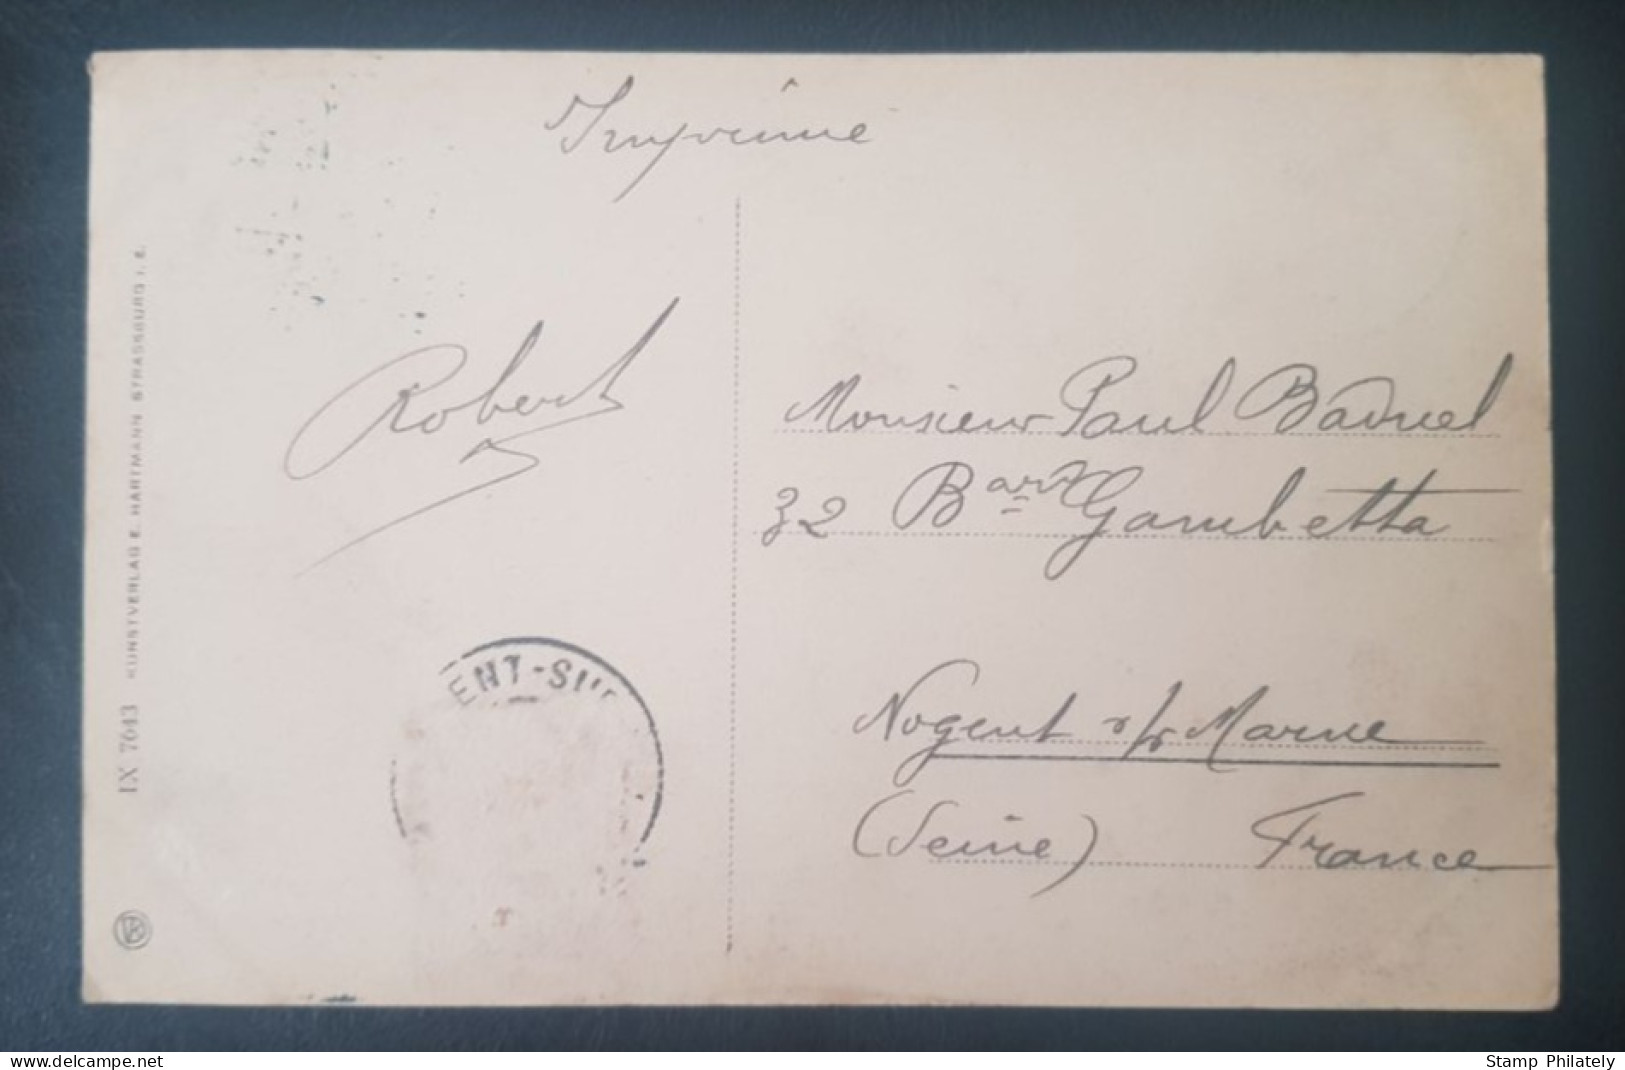 Imprimé
Robert
Monsieur Paul Baduel
32 Bard Gambetta
Nogent s/s Marne
(Seine) France
ENT-SU
IX 7643 KUNSTVERLAG E. HARTMANN STRASSBURG I. E.
www.delcampe.net
Stamp Philately